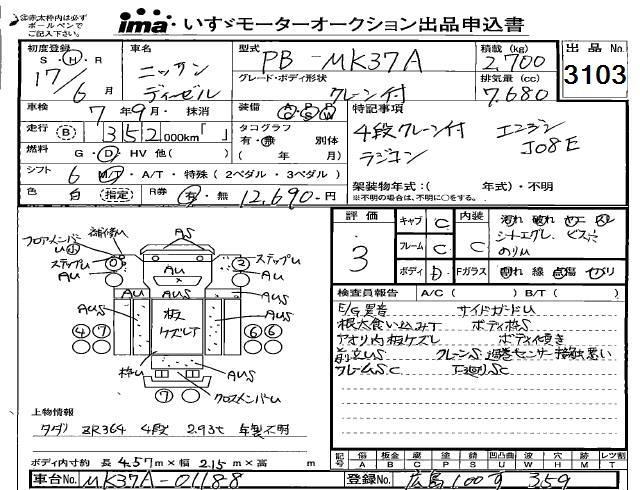 ②赤太枠内は必ず
ボールペンで
ご記入下さい。
ima いすゞモーターオークション出品申込書
初度登録 S・H・R 17/6月
車名 ニッサン ディーゼル
型式 PB-MK37A
グレード・ボディ形状 クレーン付
積載(kg) 2,700
排気量(cc) 7,680
出品No 3103
車検 7年9月・抹消
装備
特記事項
走行 B 352000km「 」
タコグラフ 有・無 別体
( 年 月)
4段クレーン付 エンジン
ラジコン J08E
燃料 G・D・HV 他( )
シフト 6 M/T・A/T・特殊(2ペダル・3ペダル)
架装物年式:( 年式)・不明
※不明の場合は、不明に○をする。
色 白 (指定) R券 有・無 12,690-円
評価 3
キャブ C
フレーム C
ボディ D
内装 C
汚れ 破れ
シートエグレ、ビス穴
のりU
Fガラス 割れ 線 点傷
フロアメンバーU
ステップU
AS
AU
ステップU
2
AU
AU
AU
AUS
AUS
AUS
板
ケズレT
4 7
6 6
枠U
AUS
7
クロスメンバーU
検査員報告 A/C( ) B/T( )
E/G異音 サイドガードU
根太食い込みT ボディ枠S
アオリ内板ケズレ ボディ傾き
前立US クレーンS 過巻センサー接触悪い
フレームSC 下廻りSC
上物情報
タダノ ZR364 4段 2.93t 年製不明
ボディ内寸約 長 4.57m×幅 2.15m×高 m
記号 傷 A 板金 B 腐 C 塗 P 錆 S 凹凸曲 U 波 W 穴 H 跡 M レツ割 T
車台No. MK37A-01188
登録No. 広島100 359